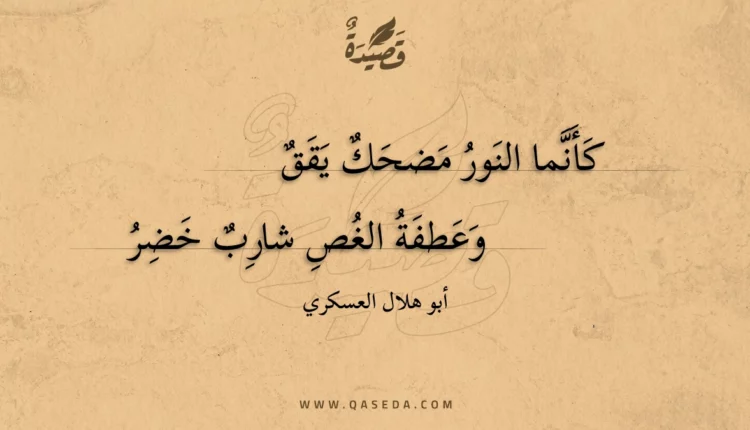 قَصِيدَةٌ
كَأَنَّما النَورُ مَضحَكٌ يَقَقٌ
وَعَطفَةُ الغُصِ شارِبٌ خَضِرُ
أبو هلال العسكري
WWW.QASEDA.COM